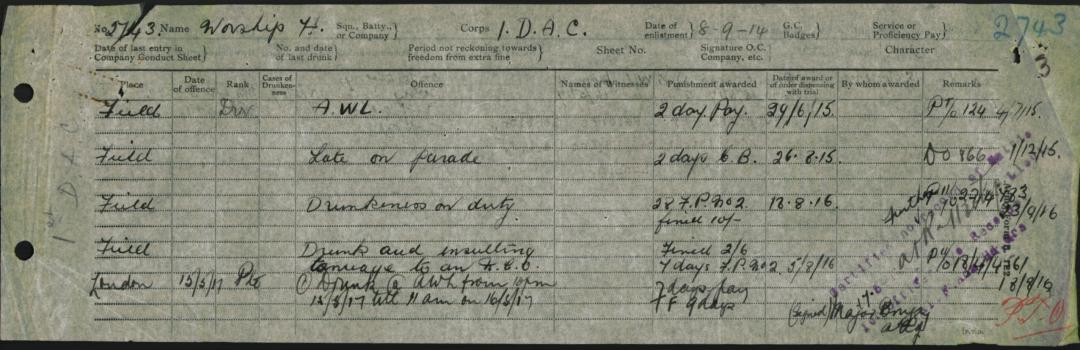 No. 2743 Name Worship H. Sqn., Batty., or Company } Corps 1. D.A.C. Date of enlistment } 8-9-14 G.C. Badges } Service or Proficiency Pay } 2743
Date of last entry in Company Conduct Sheet } No. and date of last drunk } Period not reckoning towards freedom from extra fine } Sheet No. Signature O.C. Company, etc. Character
Place Date of offence Rank Cases of Drunkenness Offence Names of Witnesses Punishment awarded Date of award or of order dispensing with trial By whom awarded Remarks
Field Dvr A.W.L. 2 day. Pay. 29/6/15. PT/O 124 4/7/15.
Field Late on parade 2 days C.B. 26.8.15. DO 866 1/12/15.
Field Drunkeness on duty 28 F.P. No 2 18.8.16.
fined 10/-
Field Drunk and insulting Fined 2/6
language to an N.C.O. 7 days F.P. No 2 5/8/16
London 15/5/17 Pte ① Drunk ② AWL from 10pm 7 days pay
15/5/17 till 11 am on 16/5/17 F 9 days (Signed) Major
P.T.O
1st D A C